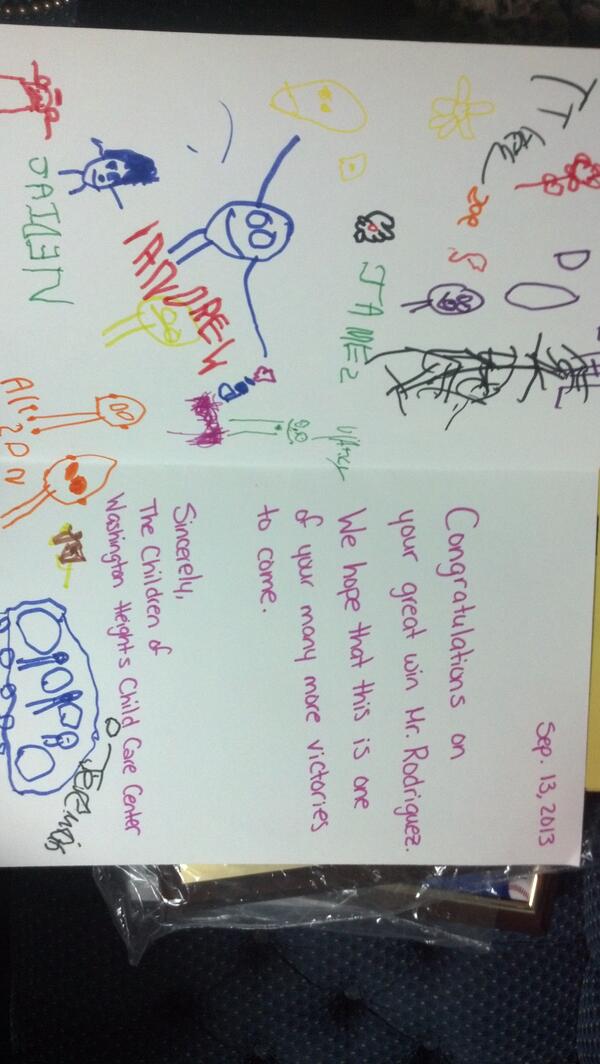 JAIDEN
ANDREW
JAMES
Sep. 13, 2013
Congratulations on
your great win Mr. Rodriguez.
We hope that this is one
of your many more victories
to come.
Sincerely,
The Children of
Washington Heights Child Care Center